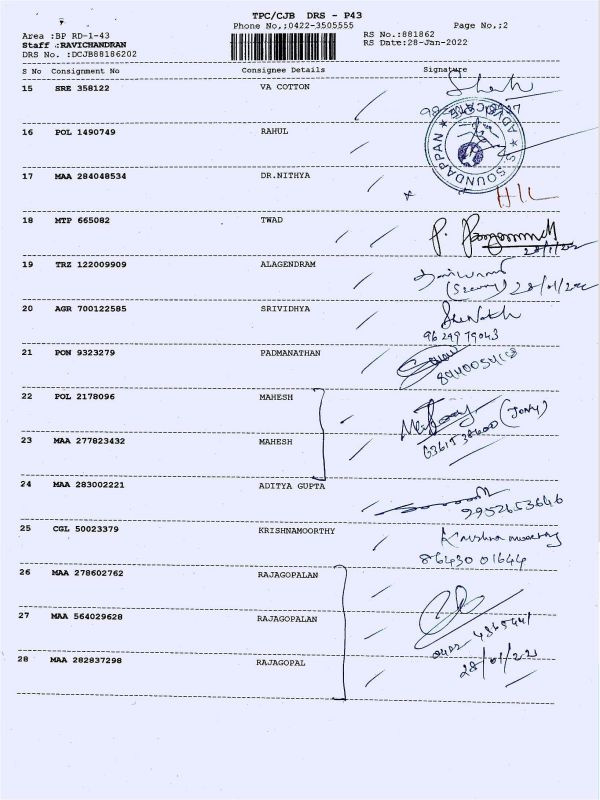 TPC/CJB DRS - P43
Phone No,:0422-3505555 Page No,;2
Area :BP RD-1-43 RS No.:881862
Staff :RAVICHANDRAN RS Date:28-Jan-2022
DRS No. :DCJB88186202
S No Consignment No Consignee Details Signature
15 SRE 358122 VA COTTON
16 POL 1490749 RAHUL
S. SOUNDAPPAN ★ ADVOCATE ★
17 MAA 284048534 DR.NITHYA
18 MTP 665082 TWAD
19 TRZ 122009909 ALAGENDRAM
28/01/22
20 AGR 700122585 SRIVIDHYA
9629979043
21 PON 9323279 PADMANATHAN
22 POL 2178096 MAHESH
(Jony)
23 MAA 277823432 MAHESH
24 MAA 283002221 ADITYA GUPTA
9952653646
25 CGL 50023379 KRISHNAMOORTHY
Krishnamoorthy
86430 01644
26 MAA 278602762 RAJAGOPALAN
27 MAA 564029628 RAJAGOPALAN
28 MAA 282837298 RAJAGOPAL
28/01/22